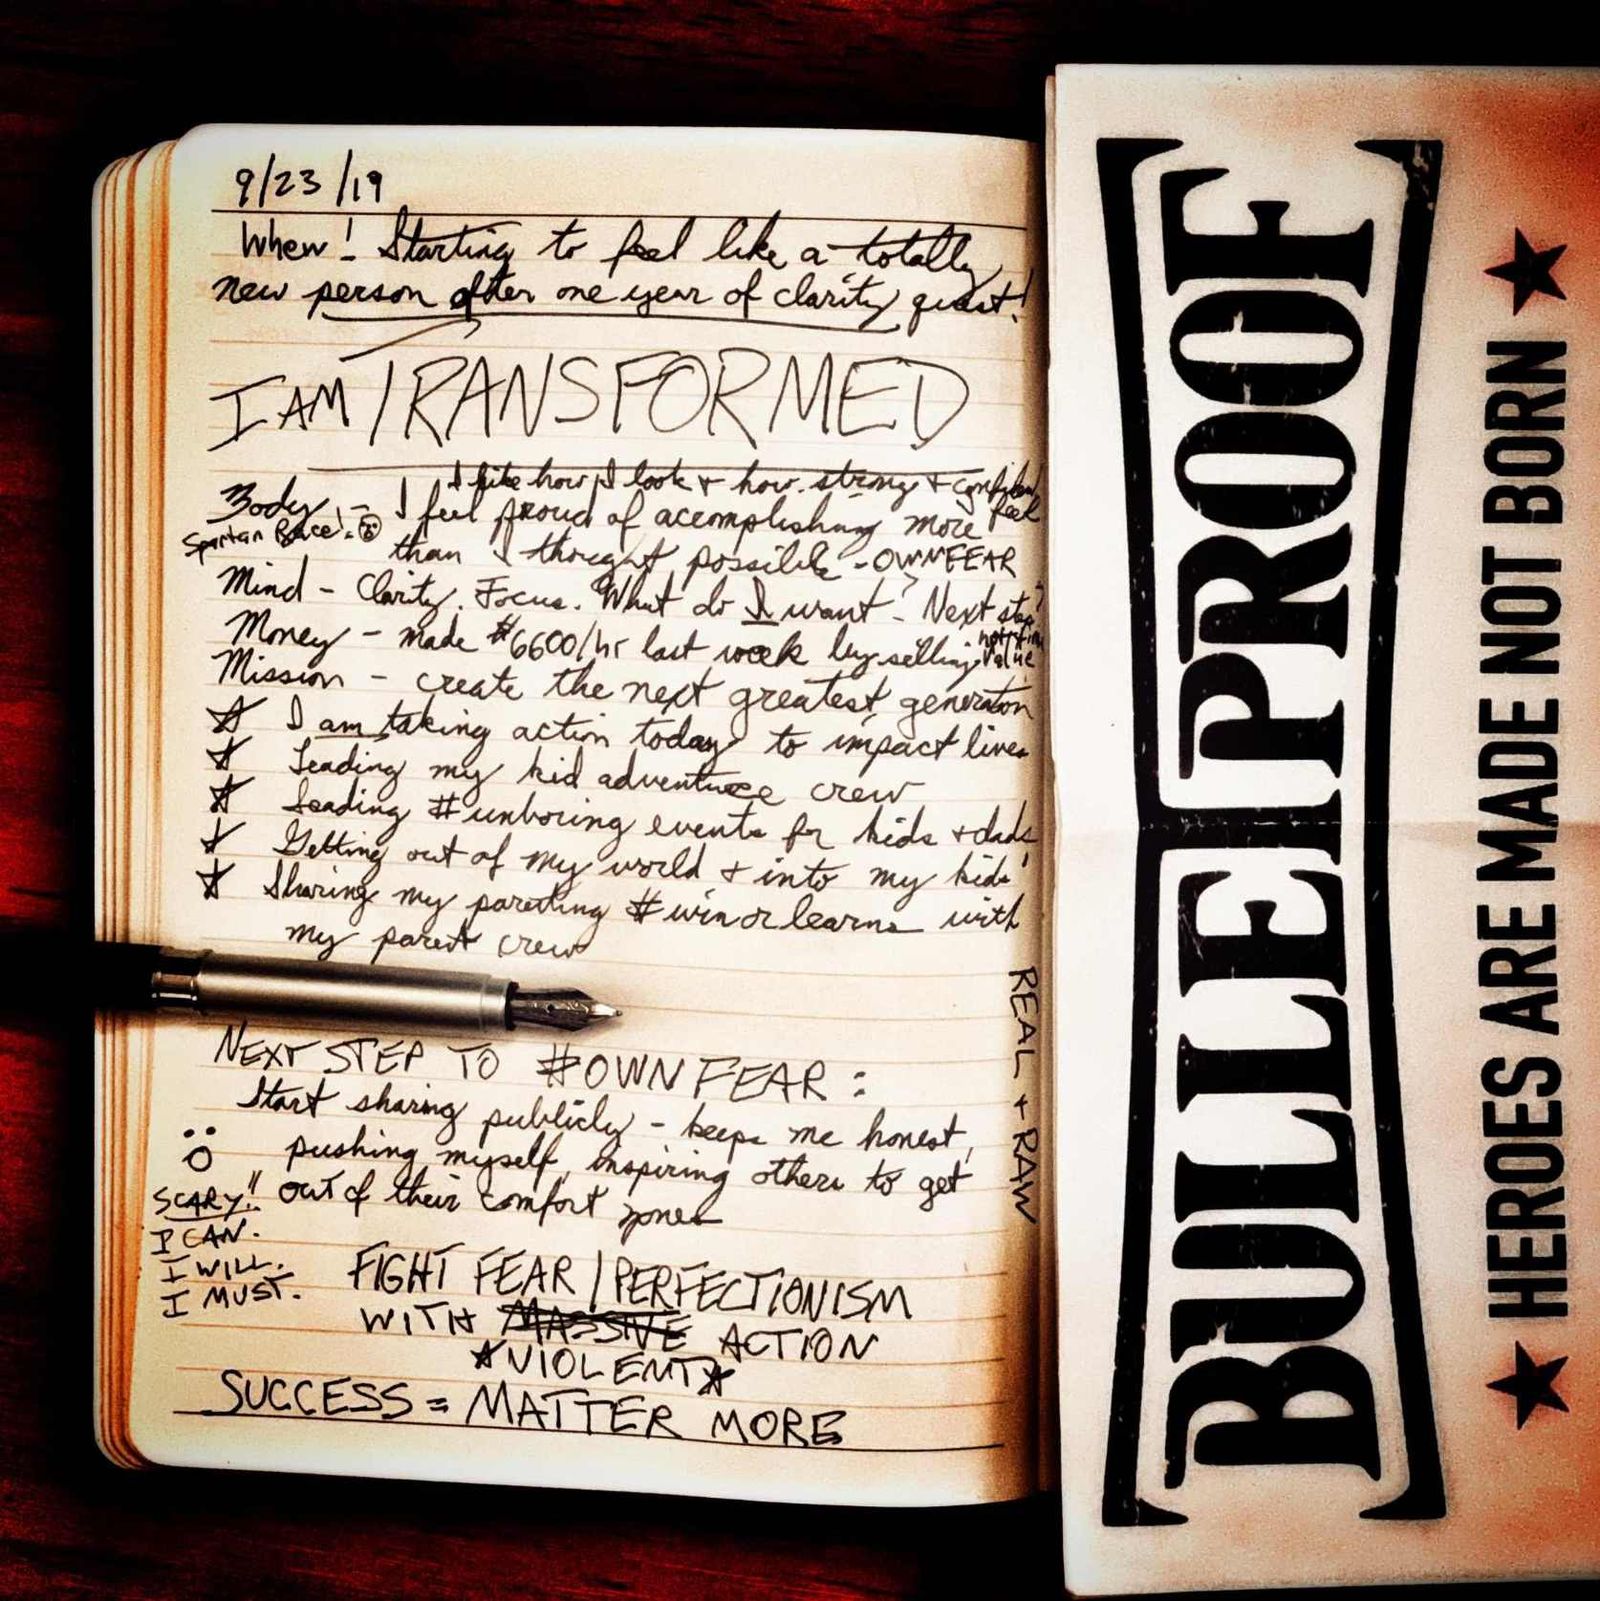 9/23/19
Whew! Starting to feel like a totally
new person after one year of clarity quest!
I AM TRANSFORMED
I like how I look + how strong + confident
feel
Body - I feel proud of acomplishing more
Spartan Race!
than I thought possible - OWNFEAR
Mind - Clarity. Focus. What do I want? Next step?
Money - made $6600/hr last week by selling
value
Mission - create the next greatest generation
☆ I am taking action today to impact lives
☆ Leading my kid adventure crew
☆ Leading #unboring events for kids + dads
☆ Getting out of my world + into my kids'
☆ Sharing my parenting #winorlearns with
my parent crew
NEXT STEP TO #OWNFEAR:
Start sharing publicly - keeps me honest,
pushing myself, inspiring others to get
out of their comfort zones
SCARY!!
I CAN.
I WILL.
I MUST.
FIGHT FEAR/PERFECTIONISM
WITH MASSIVE ACTION
☆VIOLENT☆
SUCCESS = MATTER MORE
REAL + RAW
[BULLETPROOF]
★ HEROES ARE MADE NOT BORN ★